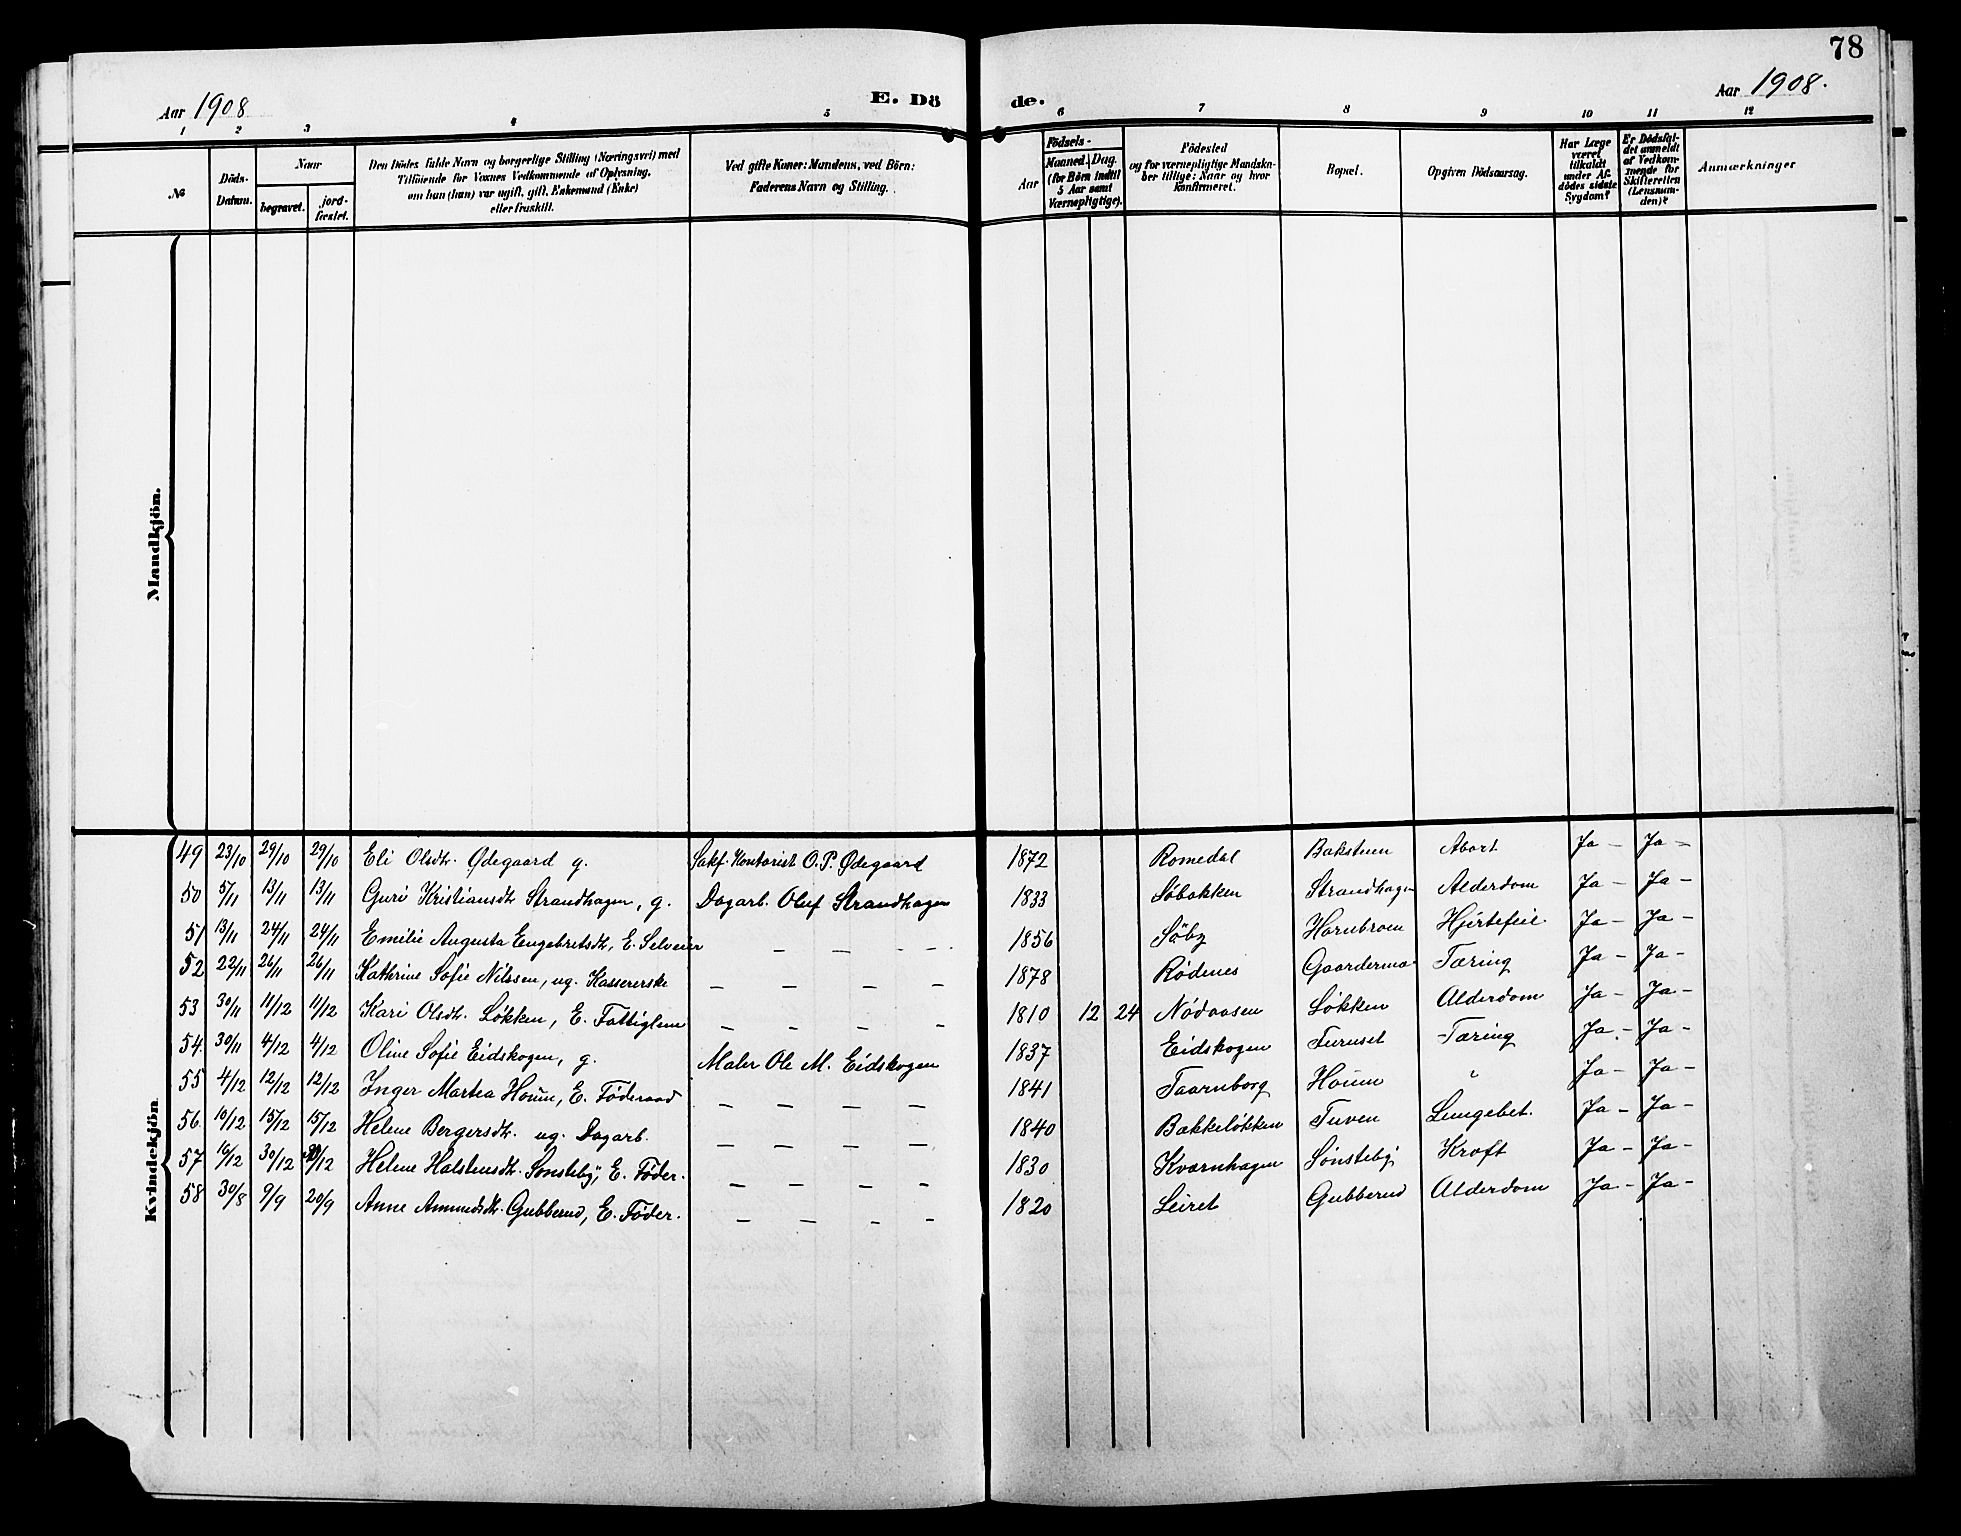 78
Aar 1908
E. Dö
de.
Aar 1908.
1 2 3 4 5 6 7 8 9 10 11 12
№
Döds-Datum.
Naar
begravet.
jord-fæstet.
Den Dödes fulde Navn og borgerlige Stilling (Næringsvei) med
Tilföiende for Voxnes Vedkommende af Oplysning,
om hun (han) var ugift, gift, Enkemand (Enke)
eller fraskilt.
Ved gifte Koner: Mandens, ved Börn:
Faderens Navn og Stilling.
Aar
Födsels-
Maaned. Dag.
(for Börn indtil
5 Aar samt
Værnepligtige).
Födested
og for værnepligtige Mandska-
ber tillige: Naar og hvor
konfirmeret.
Bopæl.
Opgiven Dödsaarsag.
Har Læge
været
tilkaldt
under Af-
dödes sidste
Sygdom?
Er Dödsfal-
det anmeldt
af Vedkom-
mende for
Skifteretten
(Lensman-
den)?
Anmærkninger
Mandkjön.
Kvindekjön
49 23/10 29/10 29/10 Eli Olsdtr. Ødegaard g. Sakf. Kontorist O. P. Ødegaard 1872 Romedal Bakstuen Abort Ja - Ja -
50 5/11 13/11 13/11 Guri Kristiansdtr Strandhagen, g. Dagarb. Oluf Strandhagen 1833 Søbakken Strandhagen Alderdom Ja - Ja -
51 13/11 24/11 24/11 Emilie Augusta Engebretsdtr, E. Selveier - - - - 1856 Søby Hornbroen Hjertefeil. Ja - Ja -
52 22/11 26/11 26/11 Kathrine Sofie Nilssen, ug. Kassererske - - - - 1878 Rødenes Gaardermo Tæring Ja - Ja -
53 30/11 11/12 11/12 Kari Olsdtr. Løkken, E. Fattiglem - - - - 1810 12 24 Nødaasen Løkken Alderdom Ja - Ja -
54 30/11 4/12 4/12 Oline Sofie Eidskogen, g. Maler Ole M. Eidskogen 1837 Eidskogen Furuset Tæring Ja - Ja -
55 4/12 12/12 12/12 Inger Martea Houm, E. Føderaad - - - - 1841 Taarnborg Houm " Ja - Ja -
56 10/12 15/12 15/12 Helene Bergersdtr. ug. Dagarb. - - - - 1840 Bakkeløkken Tuven Lungebet. Ja - Ja -
57 16/12 30/12 30/12 Helene Halstensdtr. Sønsteby, E. Føder. - - - - 1830 Kvernhagen Sønsteby Kræft Ja - Ja -
58 30/8 9/9 20/9 Anne Amundsdtr. Gubberud, E. Føder. - - - - 1820 Leiret Gubberud Alderdom Ja - Ja -